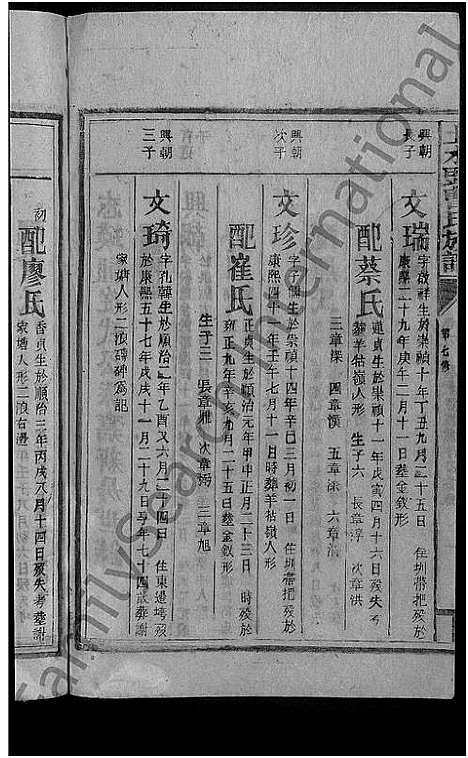 氏族譜
第七修
興朝
長子
文瑞
字啟祥生於崇禎十年丁丑九月二十五日 住圳帶把歿於
康熙二十九年庚午二月十一日塟金釵形
配蔡氏
蓮貞生於崇禎十一年戊寅四月十六日歿失考
塟羊牯嶺人形 生子六 長章淳 次章洪
三章深 四章漠 五章 六章
興朝
次子
文珍
字 生於崇禎十四年辛巳三月初一日 住圳帶把歿於
康熙四十一年壬午七月十一日時葬羊牯嶺人形
配崔氏
正貞生於順治元年甲申正月二十三日 時歿於
雍正九年辛亥九月二十五日塟金釵形
生子三 長章雅 次章 三章旭
興朝
三子
文琦
字孔 生於順治二年乙酉又六月二十四日 住東邊塆歿
於康熙五十七年戊戌十一月二十九日享年七十四歲葬謝
家塘人形二浪磚碑為記
初
配廖氏
香貞生於順治三年丙戌八月十四日歿失考塟謝
家塘人形二浪右邊
FamilySearch International